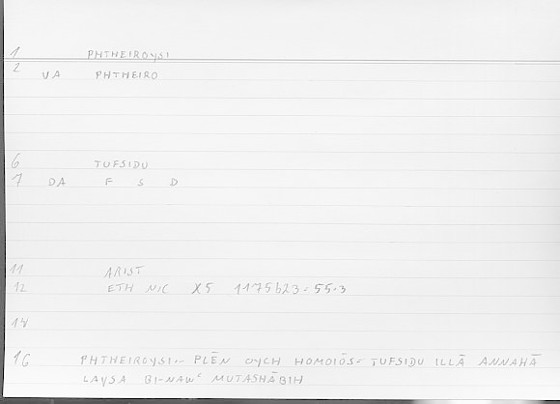 1 PHTHEIROYSI
2 VA PHTHEIRO
6 TUFSIDU
7 DA F S D
11 ARIST
12 ETH NIC X5 1175b23=55.3
14
16 PHTHEIROYSI~ PLĒN OYCH HOMOIŌS= TUFSIDU ILLĀ ANNAHĀ
LAYSA BI-NAWʿ MUTASHĀBIH